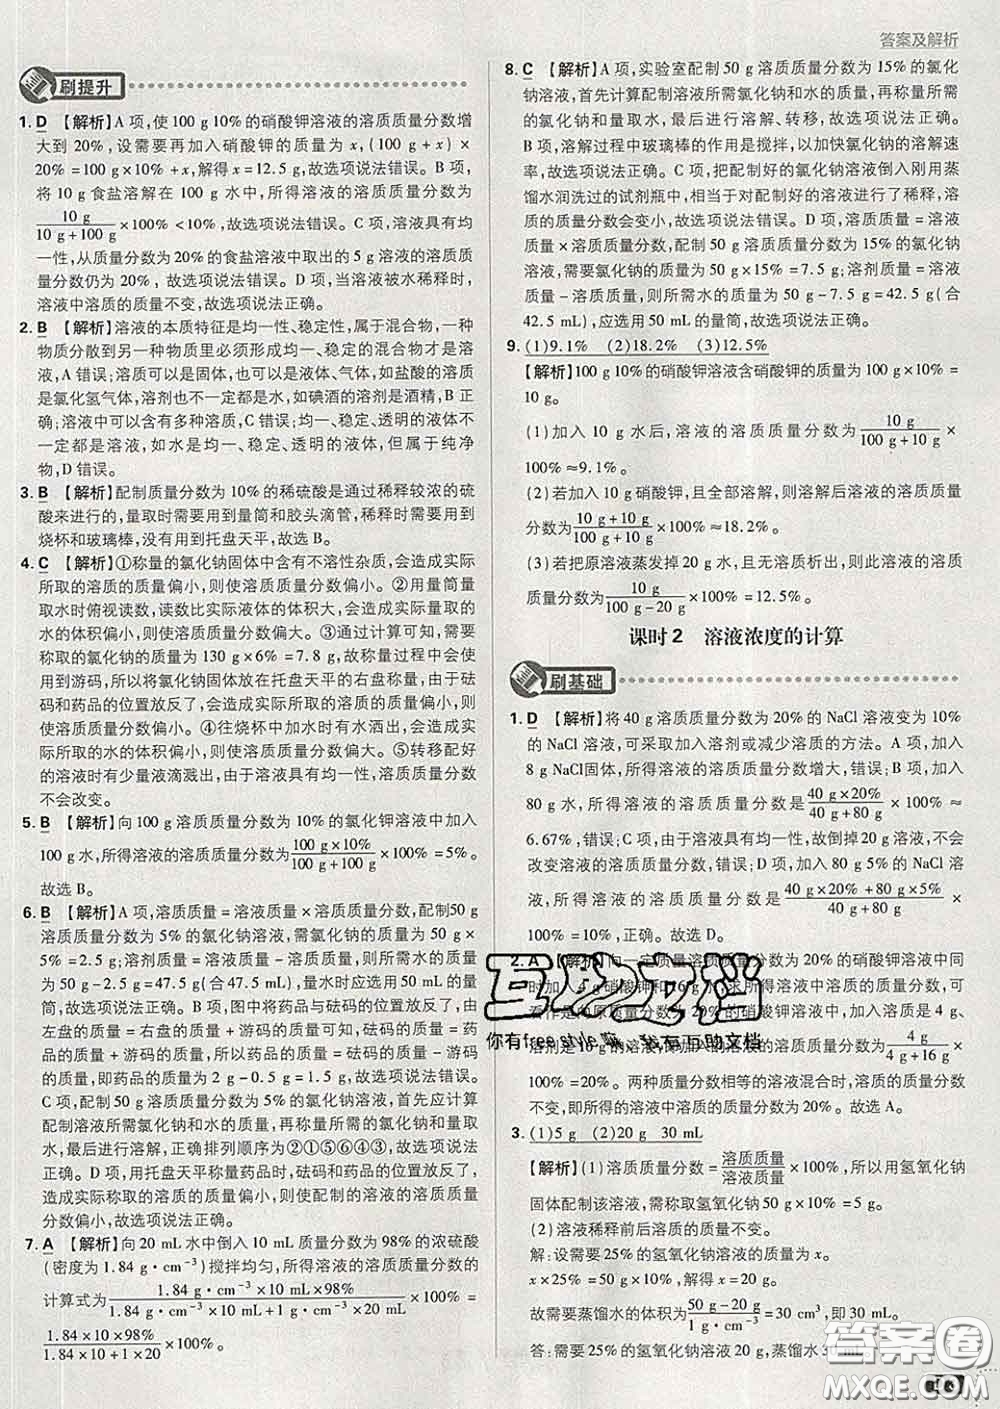 答案及解析
刷提升
1. D 【解析】A 项,使 100 g 10% 的硝酸钾溶液的溶质质量分数增
大到 20%,设需要再加入硝酸钾的质量为 x,(100 g + x) ×
20% = 100 g × 10% + x,解得 x = 12.5 g,故选项说法错误。B 项,
将 10 g 食盐溶解在 100 g 水中,所得溶液的溶质质量分数为
10 g/(10 g + 100 g) × 100% < 10%,故选项说法错误。C 项,溶液具有均
一性,从质量分数为 20% 的食盐溶液中取出的 5 g 溶液的溶质质
量分数仍为 20%,故选项说法错误。D 项,当溶液被水稀释时,
溶液中溶质的质量不变,故选项说法正确。
2. B 【解析】溶液的本质特征是均一性、稳定性,属于混合物,一种
物质分散到另一种物质里必须形成均一、稳定的混合物才是溶
液,A 错误;溶质可以是固体,也可以是液体、气体,如盐酸的溶质
是氯化氢气体,溶剂也不一定都是水,如碘酒的溶剂是酒精,B 正
确;溶液中可以含有多种溶质,C 错误;均一、稳定、透明的液体不
一定都是溶液,如水是均一、稳定、透明的液体,但属于纯净
物,D 错误。
3. B 【解析】配制质量分数为 10% 的稀硫酸是通过稀释较浓的硫
酸来进行的,量取时需要用到量筒和胶头滴管,稀释时需要用到
烧杯和玻璃棒,没有用到托盘天平,故选 B。
4. C 【解析】①称量的氯化钠固体中含有不溶性杂质,会造成实际
所取的溶质的质量偏小,则使溶质质量分数偏小。②用量筒量
取水时俯视读数,读数比实际液体的体积大,会造成实际量取的
水的体积偏小,则使溶质质量分数偏大。③通过计算可知,需要
称取的氯化钠的质量为 130 g × 6% = 7.8 g,故称量过程中需要
使用游码,所以将氯化钠固体放在托盘天平的右盘称量,由于砝
码和药品的位置放反了,会造成实际所取的溶质的质量偏小,则
使溶质质量分数偏小。④往烧杯中加水时有水洒出,会造成实
际所取的水的体积偏小,则使溶质质量分数偏大。⑤转移配好
的溶液时有少量液滴溅出,由于溶液具有均一性,溶质质量分数
不会改变。
5. B 【解析】向 100 g 溶质质量分数为 10% 的氯化钾溶液中加入
100 g 水,所得溶液的溶质质量分数为 (100 g × 10%)/(100 g + 100 g) × 100% = 5%。
故选 B。
6. B 【解析】A 项,溶质质量 = 溶液质量 × 溶质质量分数,配制 50 g
溶质质量分数为 5% 的氯化钠溶液,需氯化钠的质量为 50 g ×
5% = 2.5 g;溶剂质量 = 溶液质量 - 溶质质量,则所需水的质量
为 50 g - 2.5 g = 47.5 g(合 47.5 mL),量水时应选用 50 mL 的量
筒,故选项说法正确。B 项,图中将药品与砝码的位置放反了,由
左盘的质量 = 右盘的质量 + 游码的质量可知,砝码的质量 = 药
品的质量 + 游码的质量,所以药品的质量 = 砝码的质量 - 游码
的质量,即药品的质量为 2 g - 0.5 g = 1.5 g,故选项说法错误。
C 项,配制 50 g 溶质质量分数为 5% 的氯化钠溶液,首先应计算
配制溶液所需氯化钠和水的质量,再称量所需的氯化钠和量取
水,最后进行溶解,正确排列顺序为②①⑤⑥④③,故选项说法
正确。D 项,用托盘天平称量药品时,砝码和药品的位置放反,会
造成实际称取的溶质的质量偏小,则配制的溶液的溶质质量
分数偏小,故选项说法正确。
7. A 【解析】向 20 mL 水中倒入 10 mL 质量分数为 98% 的浓硫酸
(密度为 1.84 g·cm⁻³)搅拌均匀,所得溶液的溶质质量分数的
计算式为 (1.84 g·cm⁻³ × 10 mL × 98%)/(1.84 g·cm⁻³ × 10 mL + 1 g·cm⁻³ × 20 mL) × 100% =
(1.84 × 10 × 98%)/(1.84 × 10 + 1 × 20) × 100%。
8. C 【解析】A 项,实验室配制 50 g 溶质质量分数为 15% 的氯化
钠溶液,首先计算配制溶液所需氯化钠和水的质量,再称量所需
的氯化钠和量取水,最后进行溶解、转移,故选项说法正确。
B 项,溶解过程中玻璃棒的作用是搅拌,以加快氯化钠的溶解速
率,故选项说法正确。C 项,把配制好的氯化钠溶液倒入刚用蒸
馏水润洗过的试剂瓶中,相当于对配制好的溶液进行了稀释,溶
质的质量分数会变小,故选项说法错误。D 项,溶质质量 = 溶液
质量 × 溶质质量分数,配制 50 g 溶质质量分数为 15% 的氯化钠
溶液,需要氯化钠的质量为 50 g × 15% = 7.5 g;溶剂质量 = 溶液
质量 - 溶质质量,则所需水的质量为 50 g - 7.5 g = 42.5 g(合
42.5 mL),应选用 50 mL 的量筒,故选项说法正确。
9. (1)9.1% (2)18.2% (3)12.5%
【解析】100 g 10% 的硝酸钾溶液含硝酸钾的质量为 100 g × 10% =
10 g。
(1)加入 10 g 水后,溶液的溶质质量分数为 10 g/(100 g + 10 g) ×
100% ≈ 9.1%。
(2)若加入 10 g 硝酸钾,且全部溶解,则溶解后溶液的溶质质量
分数为 (10 g + 10 g)/(100 g + 10 g) × 100% ≈ 18.2%。
(3)若把原溶液蒸发掉 20 g 水,且无溶质析出,则此溶液的溶质
质量分数为 10 g/(100 g - 20 g) × 100% = 12.5%。
课时 2 溶液浓度的计算
刷基础
1. D 【解析】将 40 g 溶质质量分数为 20% 的 NaCl 溶液变为 10%
的 NaCl 溶液,可采取加入溶剂或减少溶质的方法。A 项,加入
8 g NaCl 固体,所得溶液的溶质质量分数增大,错误;B 项,加入
80 g 水,所得溶液的溶质质量分数是 (40 g × 20%)/(40 g + 80 g) × 100% ≈
6.67%,错误;C 项,由于溶液具有均一性,故倒掉 20 g 溶液,不会
改变溶液的溶质质量分数,错误;D 项,加入 80 g 5% 的 NaCl 溶
液,所得溶液的溶质质量分数是 (40 g × 20% + 80 g × 5%)/(40 g + 80 g) ×
100% = 10%,正确。故选 D。
2. A 【解析】向一定质量溶质质量分数为 20% 的硝酸钾溶液中同
时加入 4 g 硝酸钾和 16 g 水,求所得溶液中溶质的质量分数,可
看作是向原质量分数为 20% 的硝酸钾溶液中,加入溶质是 4 g、
溶剂是 16 g 的溶液,则加入的溶液的溶质质量分数为 4 g/(4 g + 16 g) ×
100% = 20%。两种质量分数相等的溶液混合时,溶质的质量分数
不变,即所得的溶液中溶质的质量分数为 20%。故选 A。
3. (1)5 g (2)20 g 30 mL
【解析】(1)溶质质量分数 = 溶质质量/溶液质量 × 100%,所以用氢氧化钠
固体配制该溶液,需称取氢氧化钠 50 g × 10% = 5 g。
(2)溶液稀释前后溶质的质量不变。
解:设需要 25% 的氢氧化钠溶液的质量为 x。
x × 25% = 50 g × 10%,解得 x = 20 g。
故需要蒸馏水的体积为 (50 g - 20 g)/(1 g·cm⁻³) = 30 cm³,即 30 mL。
答:需要 25% 的氢氧化钠溶液 20 g,蒸馏水 30 mL。
互助文档
你有free style,我有互助文档
答案圈
MXQE.COM